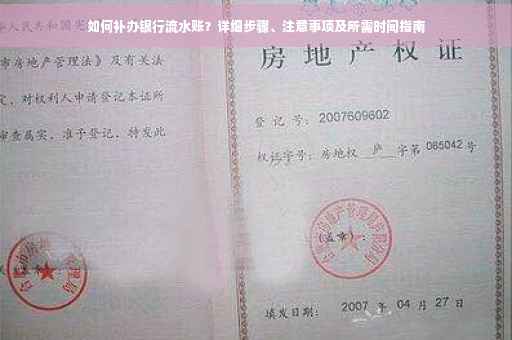 如何补办银行流水账？详细步骤、注意事项及所需时间指南
华人民共和国宪
市房地产管理法》及有关
定，对权利人申请登记本证所
审查属实，准予登记，特发此
房地产权证
登 记 号：2007609602
权证字号：房地权 庐 字第 065042 号
(盖章)：
填发日期： 2007 年 04 月 27 日